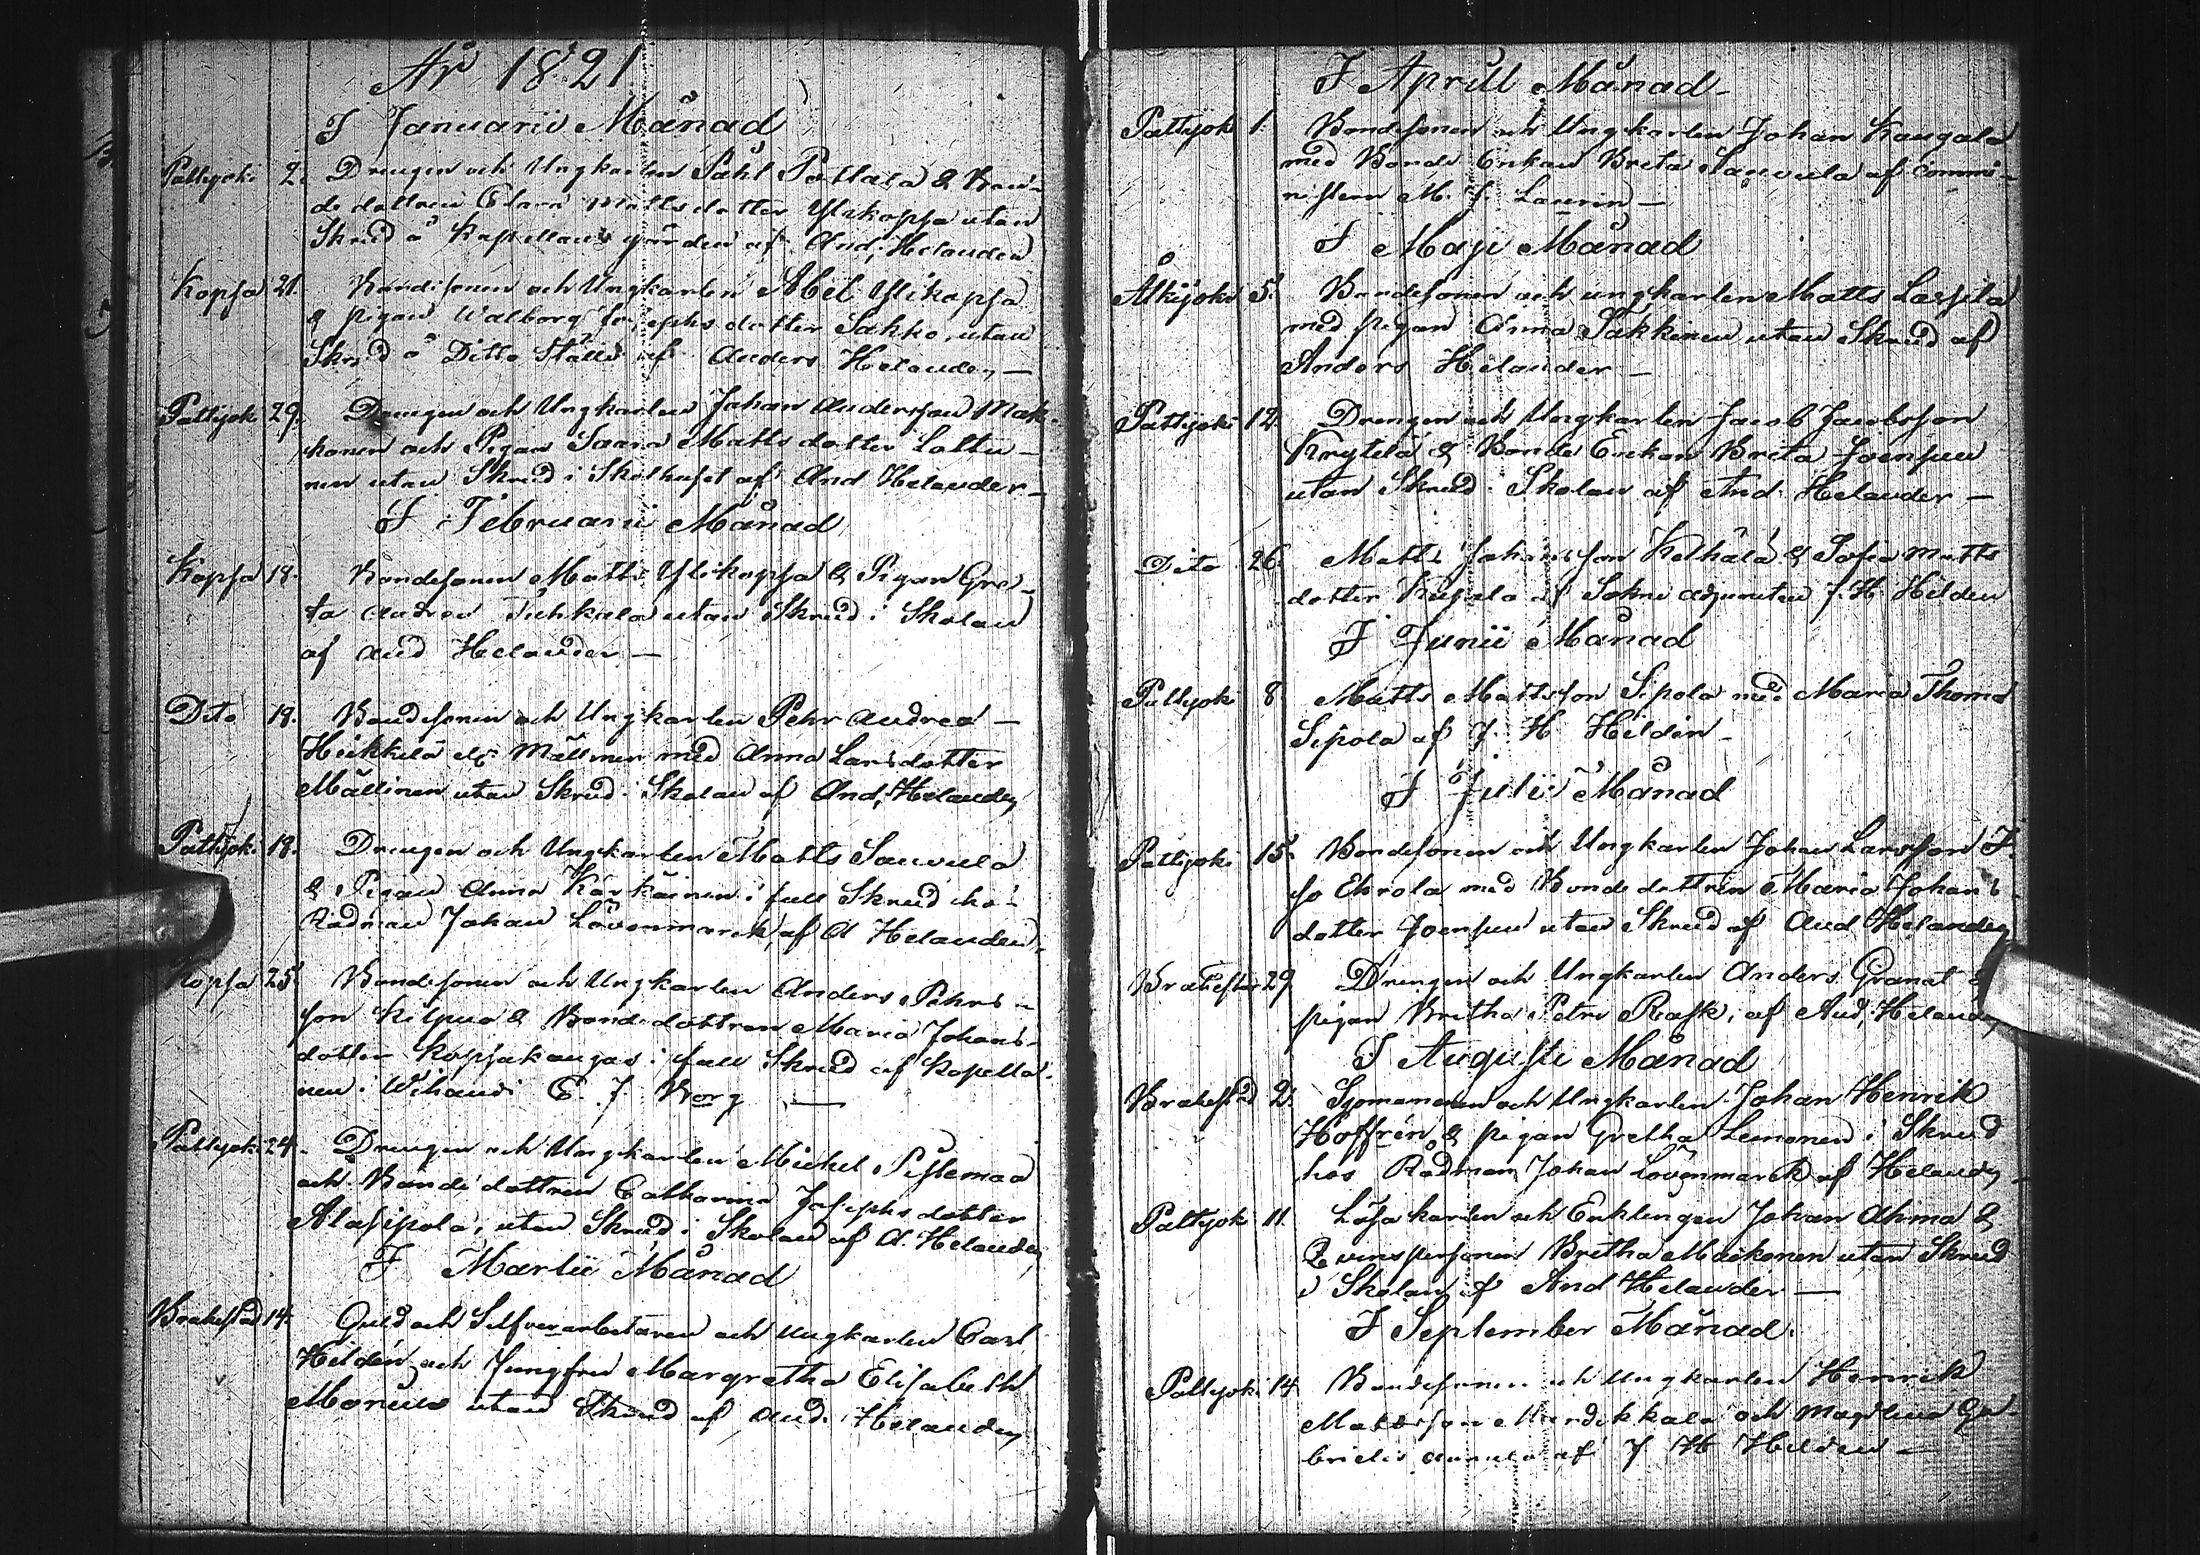 År 1821
I Januarii Månad
Pattijoki 2. Drengen och Ungkarlen Påhl Pottala & Bon-
de dottren Clara Mattsdotter Ylikopsa utan
Skrud å Kapellans gården af And, Helander
Kopsa 21. Bondesonen och Ungkarlen Abel Ylikopsa
& pigan Walborg Josephs dotter Sakko, utan
Skrud å Ditto Ställe af Anders Helander —
Pattijoki 29. Drengen och Ungkarlen Johan Andersson Mak-
konen och Pigan Saara Matts dotter Lottu-
nen utan Skrud i Skolhuset af And Helander —
I Februarii Månad
Kopsa 18. Bondesonen Matts Ylikopsa & Pigan Gre-
ta Andrea Tuhkala utan Skrud i Skolan
af And Helander —
Dito 18. Bondesonen och Ungkarlen Pehr Andrea —
Heikkilä Mällinen med Anna Larsdotter
Mällinen utan Skrud i Skolan af And, Helander
Pattijoki 18. Drengen och Ungkarlen Matts Sauvula
& Pigan Anna Kärkäinen i full Skrud hos
Rådman Johan Lövenmarck, af A Helander,
Kopsa 25. Bondesonen och Ungkarlen Anders Pehrs-
son Kilpua & Bondedottren Maria Johans-
dotter Kopsakangas i full Skrud af Kapella-
nen i Wihandi E. J. Borg —
Pattijoki 24. Drengen och Ungkarlen Michel Pistemaa
och Bonde dottren Catharina Josephs dotter
Alasipola, utan Skrud i Skolan af A. Helander
I Martii Månad
Brahestad 14. Guld och Silfverarbetaren och ungkarlen Carl
Hildén och Jungfru Margretha Elisabeth
Montin utan Skrud af And. Helander
I Aprill Månad
Pattijoki 1. Bondesonen och Ungkarlen Johan Kangala
med Bonde Enkan Brita Sauvula af Commi-
nistern M. J. Laurin —
I Maji Månad
Ålkijoki 5. Bondesonen och ungkarlen Matts Lassila
med pigan Anna Säkkinen utan Skrud af
Anders Helander —
Pattijoki 12. Drengen och Ungkarlen Jacob Jacobsson
Krytelä & Bonde Enkan Brita Joensuu
utan Skrud i Skolan af And. Helander —
Dito 26. Matts Johansson Kelhälä & Sofia Matts
dotter af Sokne adjuncten J. H. Hildén
I Junii Månad
Pattijoki 8 Matts Mattsson Sipola med Maria Thoma
Sipola af J. H Hildén —
I Julii Månad
Pattijoki 15. Bondesonen och Ungkarlen Johan Larsson I-
so Ehrola med Bonde dottren Maria Johans-
dotter Joensuu utan Skrud af And Helander
Brahestad 29 Drengen och Ungkarlen Anders Granat &
pigan Bretha Petri Rask, af And, Helander
I Augusti Månad
Brahestad 2. Sjömannen och Ungkarlen Johan Henrik
Hoffrén & pigan Gretha Leinonen i Skrud
hos Rådman Johan Lövenmarck af Helander —
Pattijoki 11. Lösa karlen och Enklingen Johan Ahma &
Qvinspersonen Bretha Maikonen utan Skrud
i Skolan af And Helander —
I September Månad
Pattijoki 14 Bondesonen och Ungkarlen Henrik
Mattsson och Magdlena Ga-
briels Annala af J H Hildén —